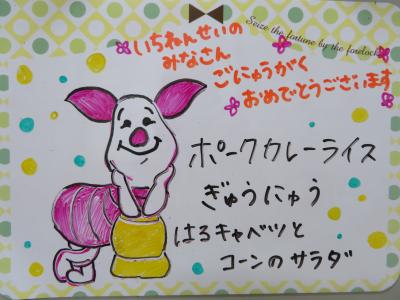 Seize the fortune by the forelock.
いちねんせいの
みなさん
ごにゅうがく
おめでとうございます
ポークカレーライス
ぎゅうにゅう
はるキャベツと
コーンのサラダ